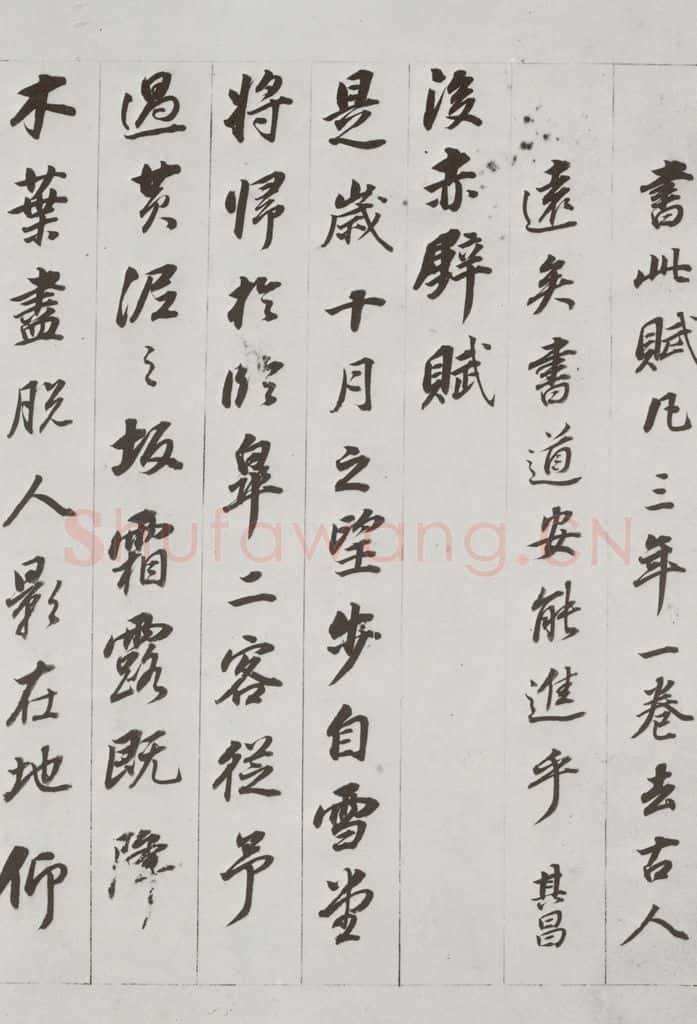 書此賦凡三年一卷去古人
遠矣書道安能進乎 其昌
後赤壁賦
是歲十月之望步自雪堂
將歸於臨皋二客從予
過黃泥之坂霜露既降
木葉盡脫人影在地仰
Shufawang.CN